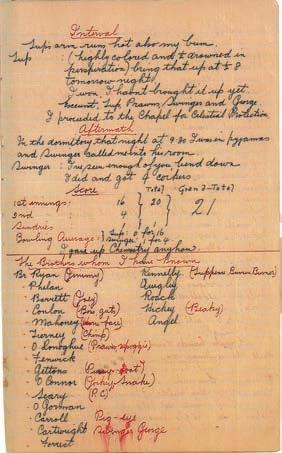 Interval
Sup's arm runs hot also my bum.
Sup : (highly colored and ½ drowned in
perspiration) bring that up at ½ 8
tomorrow night!
I won I hadn't brought it up yet.
Exeunt, Sup Prawns, Swinger and George.
I proceeded to the Chapel for Celestial Protection
Aftermath
In the dormitory that night at 9.30 I was in pyjamas
and Swinger called me into his room
Swinger : I've seen enough of you bend down
I did and got 4 corkers
Score
Total Grand-Total
1st innings: 16 } 20 } 21
2nd " 4
Sundries
Bowling Average: Sup: 0 for 16
Swinger " for 4
I gave up Chemistry anyhow.
The Brothers whom I have known
Br Ryan (Jimmy)
" Phelan
" Barrett (Joey)
" Conlon (Bow guts)
" Mahoney (face)
" Tierney (Chimp)
" O Donoghue (Prawns)
" Fenwick
" Gettons (Pussy-foot)
" O Connor (Jockey Snake)
" Geary (P.C.)
" O Gorman
" Carroll Pig-eye
" Cartwright Swinger George
" Forrest
Kennelly (Suppers)
Quigley
Roach
Hickey (Beaky)
Angel